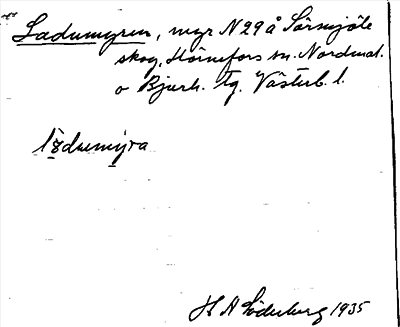 Ladumyren, myr N 29 å Sörmjöle
skog, Hörnefors sn. Nordmal.
o Bjurh. tg. Västerb. l.
lädumy̱ra
H A Söderberg 1935